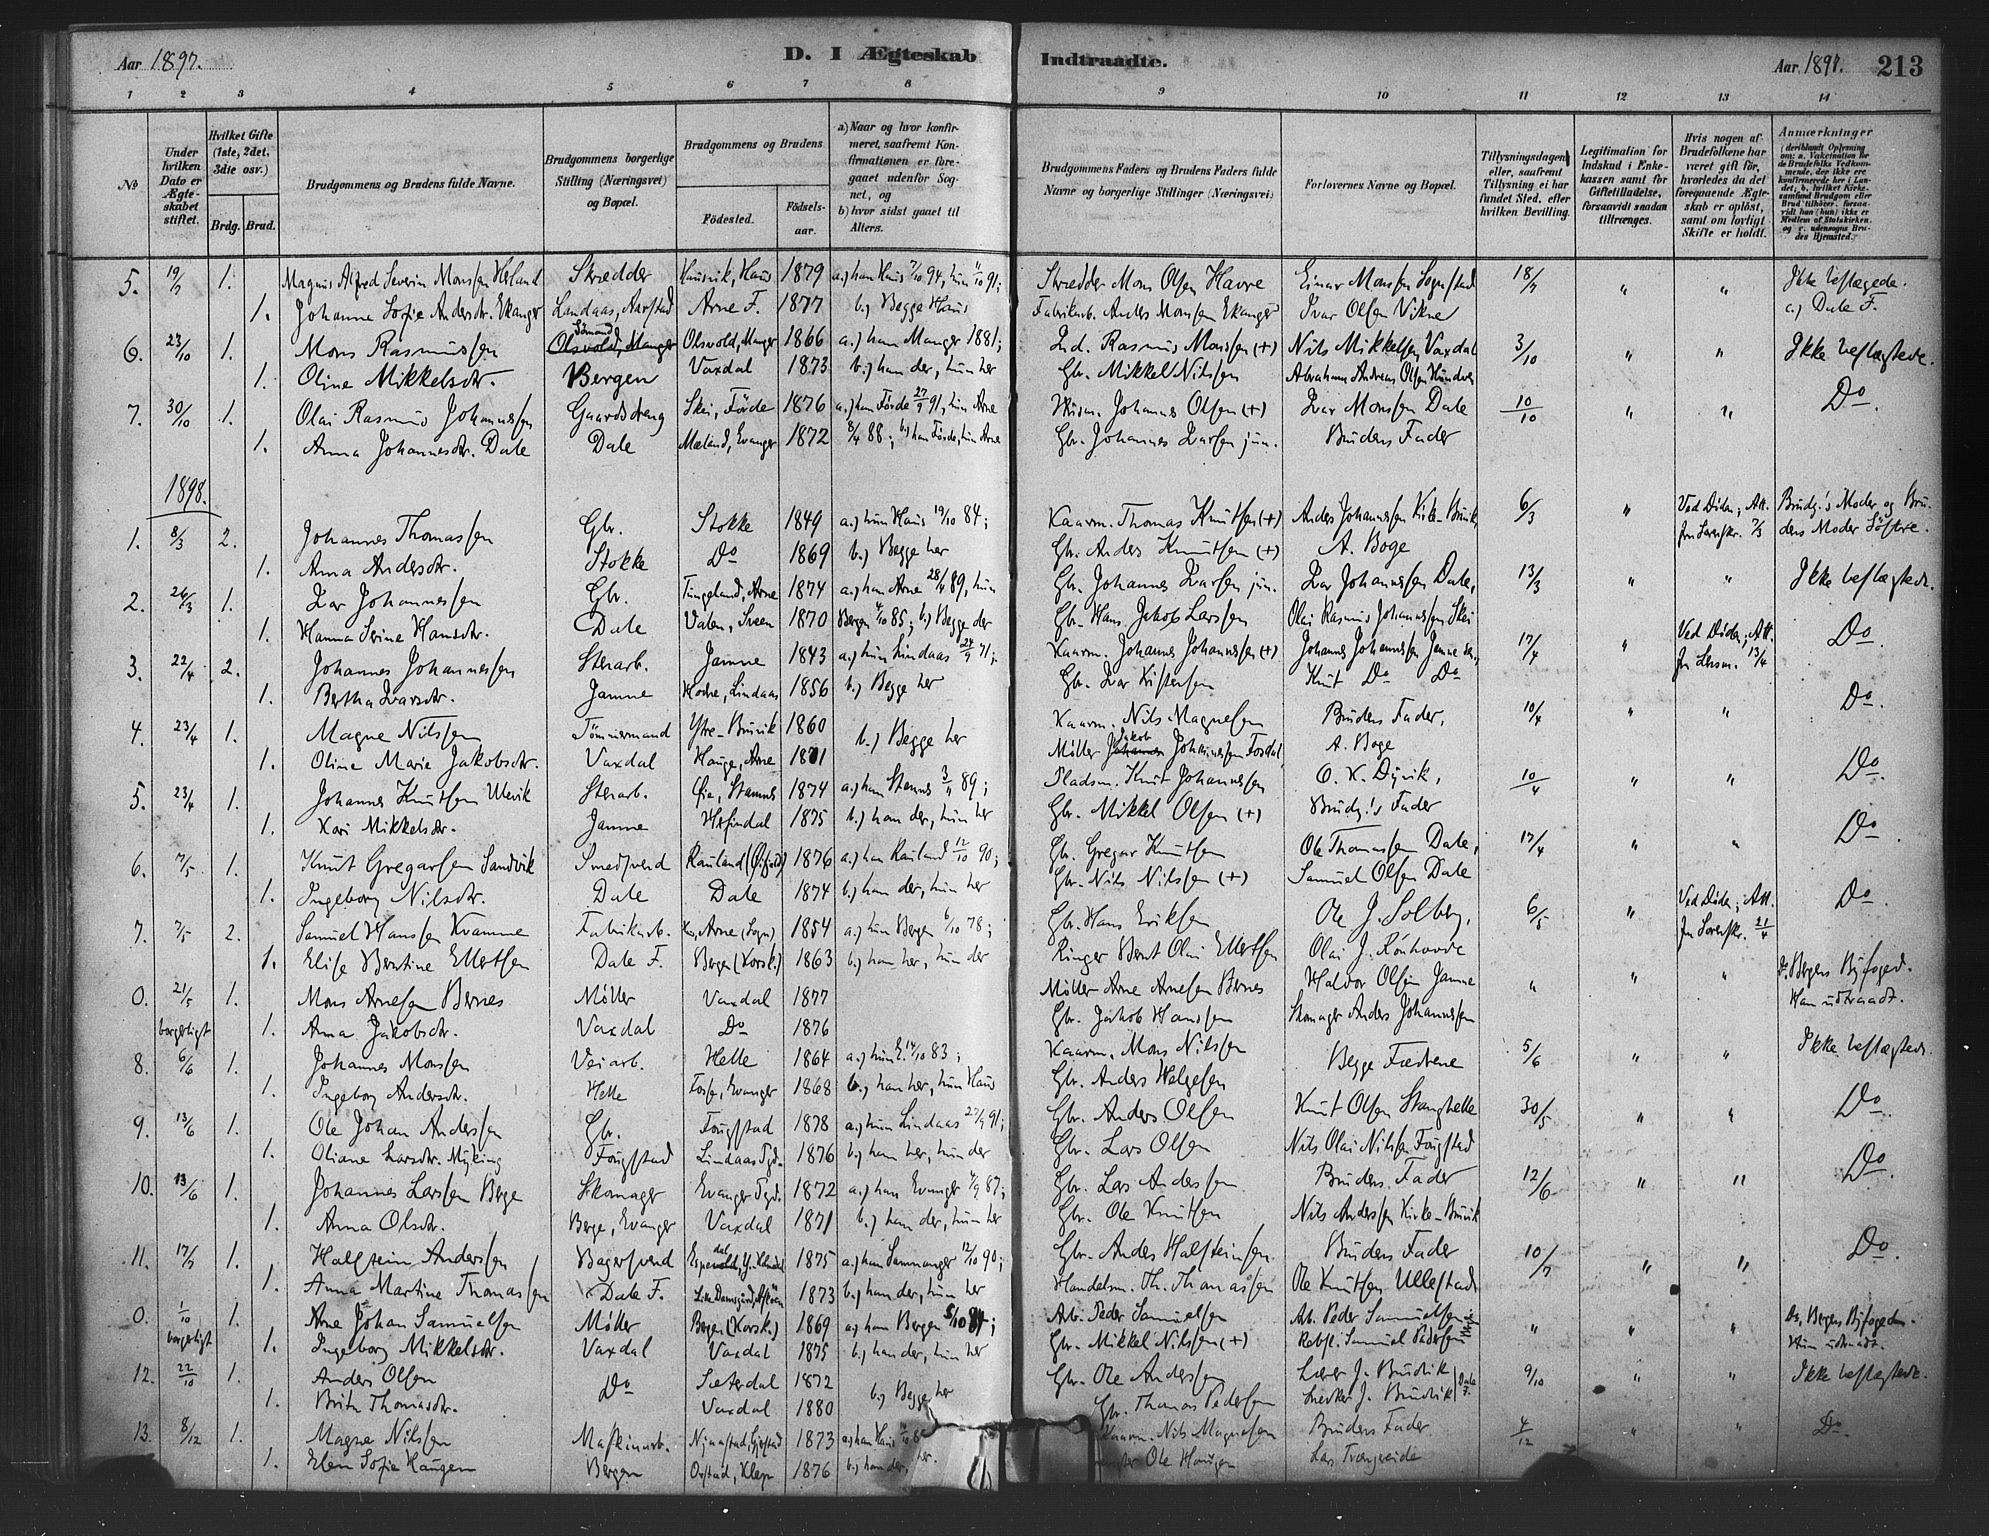 Aar 1897.
D. I Ægteskab Indtraadte.
Aar 1897.
213
1 2 3 4 5 6 7 8 9 10 11 12 13 14
No
Under hvilken Dato er Ægteskabet stiftet.
Hvilket Gifte (1ste, 2det, 3die osv.)
Brdg. Brud.
Brudgommens og Brudens fulde Navne.
Brudgommens borgerlige Stilling (Næringsvei) og Bopæl.
Brudgommens og Brudens
Fødested.
Fødsels-aar.
a) Naar og hvor konfirmeret, saafremt Konfirmationen er foregaaet udenfor Sognet, og
b) hvor sidst gaaet til Alters.
Brudgommens Faders og Brudens Faders fulde Navne og borgerlige Stillinger (Næringsvei)
Forlovernes Navne og Bopæl.
Tillysningsdagen eller, saafremt Tillysning ei har fundet Sted, efter hvilken Bevilling.
Legitimation for Indskud i Enkekassen samt for Giftetilladelse, forsaavidt saadan tiltrænges.
Hvis nogen af Brudefolkene har været gift før, hvorledes da det foregaaende Ægteskab er opløst, samt om lovligt Skifte er holdt.
Anmærkninger
5. 19/7 1. Magnus Alfred Severin Monssen Herland Skrædder Hausvik, Haus 1879 a.) han Haus 7/10 94, hun 4/10 91; Skrædder Mons Olsen Havre Einar Monssen Sognstad 18/7 " " Ikke beslægtede.
1. Johanne Sofie Andersdtr. Ekanger Landaas, Aarstad Arne F. 1877 b.) Begge Haus Fabrikarb. Anders Monsen Ekanger Ivar Olsen Vikne a.) Dale F.
6. 23/10 1. Mons Rasmussen Sømand Olsvold, Manger Olsvold, Manger 1866 a.) han Manger 1881; Ind. Rasmus Monssen (+) Nils Mikkelsen Vaxdal 3/10 " " Ikke beslægtede.
1. Oline Mikkelsdtr. Bergen Vaxdal 1873 b.) han der, hun her Gbr. Mikkel Nilssen Abraham Andreas Olsen
7. 30/10 1. Olai Rasmus Johannessen Gaardsdreng Skei, Förde 1876 a.) han Förde 27/9 91, hun Arne Husm. Johannes Olsen (+) Ivar Monssen Dale 10/10 " " Do.
1. Anna Johannesdtr. Dale Dale Mæland, Evanger 1872 8/4 88; b.) han Förde, hun Arne Gbr. Johannes Ivarsen jun. Brudens Fader
1898.
1. 8/3 2. Johannes Thomassen Gbr. Stokke 1849 a.) hun Haus 19/10 84; Kaarm. Thomas Knutsen (+) Anders Johannessen Kirke-Bruvik 6/3 " Ved Döden; Att. fra Sorenskr. 7/3 Brudg.'s Moder og Brudens Moder Söstre.
1. Anna Andersdtr. Stokke Do 1869 b.) Begge her Gbr. Anders Knutsen (+) A. Boge
2. 24/3 1. Ivar Johannessen Gbr. Tungeland, Arne 1874 a.) han Arne 28/4 89, hun Gbr. Johannes Ivarsen jun. Ivar Johannessen Dale, 13/3 " " Ikke beslægtede.
1. Hanna Serine Hansdtr. Dale Valen, Sveen 1870 Bergen 4/10 85; b.) Begge der Gbr. Hans Jakob Larssen Olai Rasmus Johannessen Skei
3. 22/4 2. Johannes Johannessen Stenarb. Jamne 1843 a.) hun Lindaas 24/9 71; Kaarm. Johannes Johannessen (+) Johannes Johannessen Jamne sen., 17/4 " Ved Döden; Att. fr. Lensm. 13/4 Do
1. Bertha Ivarsdtr. Jamne Hodne, Lindaas 1856 b.) Begge her Gbr. Ivar Kristensen Knut Do Do
4. 23/4 1. Magne Nilssen Tömmermand Ytre-Bruvik 1860 b.) Begge her Kaarm. Nils Magnesen Brudens Fader, 10/4 " " Do.
1. Oline Marie Jakobsdtr. Vaxdal Hauge, Arne 1871 Möller Jakob Johannessen Fosdal A. Boge
5. 23/4 1. Johannes Knutsen Ulevik Stenarb. Øie, Stamnes 1874 a.) han Stamnes 3/11 89; Pladsm. Knut Johannessen O. K. Dyvik, 10/4 " " Do.
1. Kari Mikkelsdtr. Jamne Hesjedal 1875 b.) han der, hun her Gbr. Mikkel Olsen (+) Brudg.'s Fader
6. 7/5 1. Knut Gregarsen Sandvik Smedsvend Rauland 1876 a.) han Rauland 12/10 90; Gbr. Gregar Knutsen Ole Thomassen Dale, 17/4 " " Do.
1. Ingeborg Nilsdtr. Dale Dale 1874 b.) han der, hun her Gbr. Nils Nilssen (+) Samuel Olsen Dale
7. 7/5 2. Samuel Hanssen Kvamme Fabrikarb. Arne (Sogn) 1854 a.) hun Bergen 6/10 78; Gbr. Hans Eriksen Ole J. Solberg, 6/5 " Ved Döden; Att. fr. Sorenskr. 21/4 Do.
1. Elise Berntine Ellertsen Dale F. Bergen (Korsk.) 1863 b.) han her, hun der Ringer Bernt Olai Ellertsen Olai J. Rönhovde
0. 21/5 1. Mons Arnesen Bernes Möller Vaxdal 1877 Möller Arne Arnesen Bernes Halvor Olsen Jamne " " " Do. Bergens Byfoged. Han udtraadt.
borgerligt 1. Anna Jakobsdtr. Vaxdal Do 1876 Gbr. Jakob Hanssen Skomager Anders Johannessen
8. 6/6 1. Johannes Monssen Veiarb. Helle 1864 a.) hun E. 14/10 83; Kaarm. Mons Nilssen Begge Fædrene 5/6 " " Ikke beslægtede.
1. Ingeborg Andersdtr. Helle Fosse, Evanger 1868 b.) han her, hun Haus Gbr. Anders Helgesen
9. 13/6 1. Ole Johan Anderssen Gbr. Fougstad 1878 a.) hun Lindaas 27/9 91; Gbr. Anders Olsen Knut Olsen Stanghelle 30/5 " " Do.
1. Oliane Larsdtr. Myking Fougstad Lindaas Pgd. 1876 b.) han her, hun der Gbr. Lars Olsen Nils Olai Nilsen Fougstad
10. 13/6 1. Johannes Larssen Berge Skomager Evanger Pgd. 1872 a.) han Evanger 4/9 87; Gbr. Lars Anderssen Brudens Fader 12/6 " " Do.
1. Anna Olsdtr. Berge, Evanger Vaxdal 1871 b.) han der, hun her Gbr. Ole Knutsen Nils Anderssen Kirke-Bruvik
11. 17/7 1. Halstein Anderssen Bagersvend 1875 a.) han Samnanger 12/10 90; Gbr. Anders Halsteinsen Brudens Fader 10/7 " " Do.
1. Anna Martine Thomassen Dale F. Lille Damsgård, Askøen 1873 b.) han der, hun her Handelsm. Th. Thomassen Ole Knutsen Ullestad
0. 1/10 1. Arne Johan Samuelsen Möller Bergen (Korsk.) 1869 a.) han Bergen 5/10 84; Arb. Peder Samuelsen Arb. Peder Samuelsen " " " Do. Bergens Byfoged. Hun udtraadt.
borgerligt 1. Ingeborg Mikkelsdtr. Vaxdal Vaxdal 1875 b.) han der, hun her Gbr. Mikkel Nilssen (+) Rebsl. Samuel Pedersen
12. 22/10 1. Anders Olsen Do Sæterdal 1872 b.) Begge her Gbr. Ole Anderssen Lærer J. Bruvik 9/10 " " Ikke beslægtede.
1. Brita Thomasdtr. Vaxdal 1880 Gbr. Thomas Pedersen Snedker J. Bruvik Dale F.
13. 8/12 1. Magne Nilssen Maskinarb. 1873 a.) han Haus Kaarm. Nils Magnesen Brudens Fader 4/12 " " Do.
1. Elen Sofie Haugen Bergen Orstad, Klepp 1876 b.) han der, her. Ole Haugen Lars Trængereide